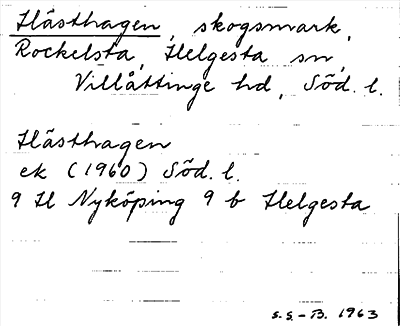 Hästhagen, skogsmark,
Rockelsta, Helgesta sn,
Villåttinge hd, Söd. l.
Hästhagen
ek (1960) Söd. l.
9 H Nyköping 9 b Helgesta
S.S.-B. 1963